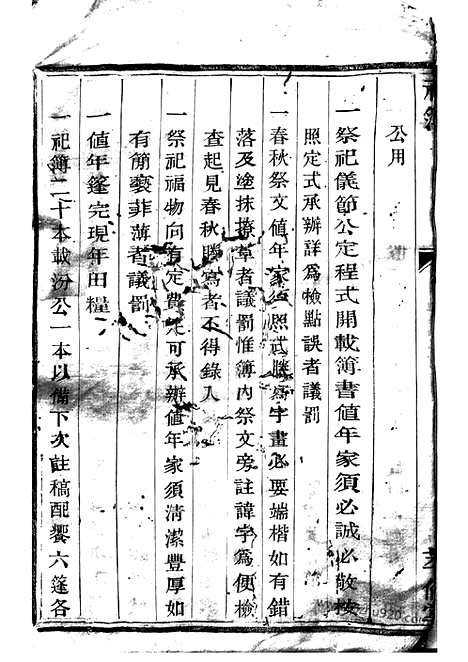 公用
一祭祀儀節公定程式開載簿書値年家須必誠必敬按
照定式承辦詳爲檢點誤者議罰
一春秋祭文値年家須照式謄寫字畫必要端楷如有錯
落及塗抹撩草者議罰惟簿內祭文旁註諱字爲便檢
查起見春秋謄寫者不得錄入
一祭祀福物向有定費凡可承辦値年家須清潔豐厚如
有簡褻菲薄者議罰
一値年篷完現年田糧
一祀簿二十本載汾公一本以備下次註稿配饗六篷各